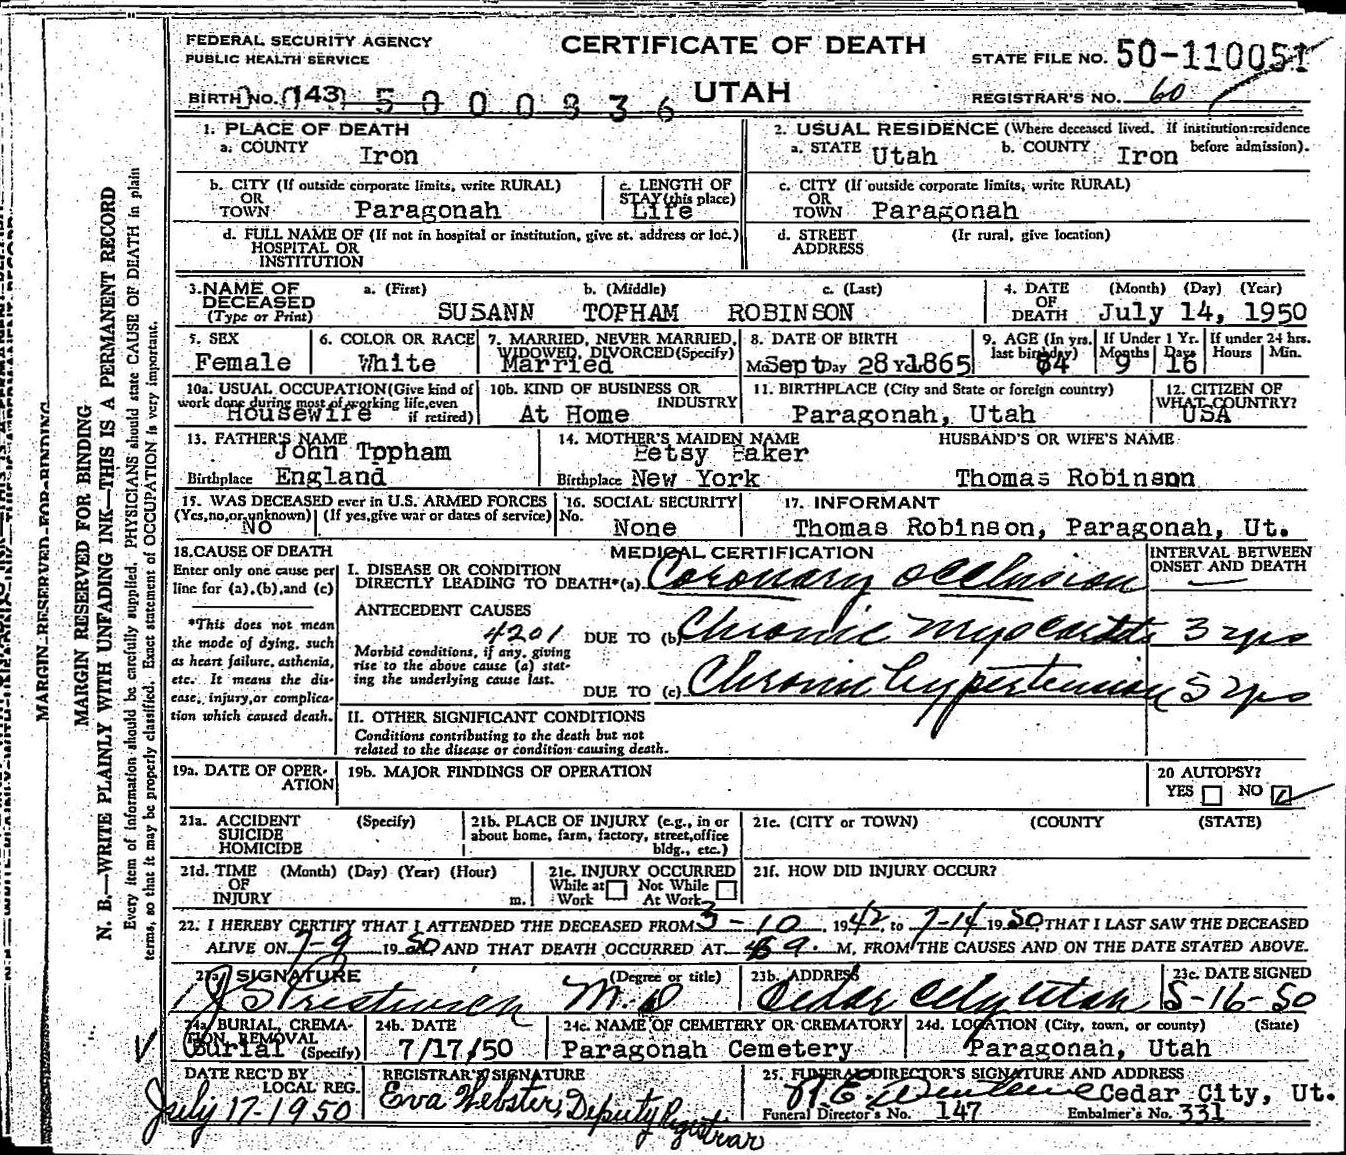 FEDERAL SECURITY AGENCY
PUBLIC HEALTH SERVICE
CERTIFICATE OF DEATH
UTAH
STATE FILE NO. 50-110051
REGISTRAR'S NO. 60
BIRTH NO. (143) 5000836
1. PLACE OF DEATH
a. COUNTY Iron
2. USUAL RESIDENCE (Where deceased lived. If institution:residence before admission).
a. STATE Utah b. COUNTY Iron
b. CITY (If outside corporate limits, write RURAL)
OR
TOWN Paragonah
c. LENGTH OF
STAY (this place)
Life
c. CITY (If outside corporate limits, write RURAL)
OR
TOWN Paragonah
d. FULL NAME OF (If not in hospital or institution, give st. address or loc.)
HOSPITAL OR
INSTITUTION
d. STREET (If rural, give location)
ADDRESS
3. NAME OF
DECEASED
(Type or Print)
a. (First) b. (Middle) c. (Last)
SUSANN TOPHAM ROBINSON
4. DATE
OF
DEATH
(Month) (Day) (Year)
July 14, 1950
5. SEX
Female
6. COLOR OR RACE
White
7. MARRIED, NEVER MARRIED,
WIDOWED, DIVORCED (Specify)
Married
8. DATE OF BIRTH
Mo Sept Day 28 Yr 1865
9. AGE (In yrs.
last birthday)
84
If Under 1 Yr.
Months Days
9 16
If under 24 hrs.
Hours Min.
10a. USUAL OCCUPATION (Give kind of
work done during most of working life, even
if retired)
Housewife
10b. KIND OF BUSINESS OR
INDUSTRY
At Home
11. BIRTHPLACE (City and State or foreign country)
Paragonah, Utah
12. CITIZEN OF
WHAT COUNTRY?
USA
13. FATHER'S NAME
John Topham
Birthplace England
14. MOTHER'S MAIDEN NAME
Betsy Baker
Birthplace New York
HUSBAND'S OR WIFE'S NAME
Thomas Robinson
15. WAS DECEASED ever in U.S. ARMED FORCES
(Yes, no, or unknown) (If yes, give war or dates of service)
NO
16. SOCIAL SECURITY
No.
None
17. INFORMANT
Thomas Robinson, Paragonah, Ut.
18. CAUSE OF DEATH
Enter only one cause per
line for (a), (b), and (c)
*This does not mean
the mode of dying, such
as heart failure, asthenia,
etc. It means the dis-
ease, injury, or complica-
tion which caused death.
MEDICAL CERTIFICATION
INTERVAL BETWEEN
ONSET AND DEATH
I. DISEASE OR CONDITION
DIRECTLY LEADING TO DEATH*(a) Coronary occlusion
ANTECEDENT CAUSES
4201
DUE TO (b) Chronic myocarditis 3 yrs
Morbid conditions, if any, giving
rise to the above cause (a) stat-
ing the underlying cause last.
DUE TO (c) Chronic hypertension 5 yrs
II. OTHER SIGNIFICANT CONDITIONS
Conditions contributing to the death but not
related to the disease or condition causing death.
19a. DATE OF OPER-
ATION
19b. MAJOR FINDINGS OF OPERATION
20 AUTOPSY?
YES NO
21a. ACCIDENT (Specify)
SUICIDE
HOMICIDE
21b. PLACE OF INJURY (e.g., in or
about home, farm, factory, street, office
bldg., etc.)
21c. (CITY or TOWN) (COUNTY) (STATE)
21d. TIME (Month) (Day) (Year) (Hour)
OF
INJURY m.
21e. INJURY OCCURRED
While at Not While
Work At Work
21f. HOW DID INJURY OCCUR?
22. I HEREBY CERTIFY THAT I ATTENDED THE DECEASED FROM 3-10, 1942, to 7-14 1950 THAT I LAST SAW THE DECEASED
ALIVE ON 7-9 1950 AND THAT DEATH OCCURRED AT M, FROM THE CAUSES AND ON THE DATE STATED ABOVE.
23a. SIGNATURE (Degree or title)
J S Prestwich M.D
23b. ADDRESS
Cedar City Utah
23c. DATE SIGNED
S-16-50
24a. BURIAL, CREMA-
TION, REMOVAL
(Specify)
Burial
24b. DATE
7/17/50
24c. NAME OF CEMETERY OR CREMATORY
Paragonah Cemetery
24d. LOCATION (City, town, or county) (State)
Paragonah, Utah
DATE REC'D BY
LOCAL REG.
July 17-1950
REGISTRAR'S SIGNATURE
Eva Webster, Deputy Registrar
25. FUNERAL DIRECTOR'S SIGNATURE AND ADDRESS
Cedar City, Ut.
Funeral Director's No. 147 Embalmer's No. 331
MARGIN RESERVED FOR BINDING
MARGIN RESERVED FOR BINDING
N. B.—WRITE PLAINLY WITH UNFADING INK—THIS IS A PERMANENT RECORD
Every item of information should be carefully supplied. PHYSICIANS should state CAUSE OF DEATH in plain
terms, so that it may be properly classified. Exact statement of OCCUPATION is very important.